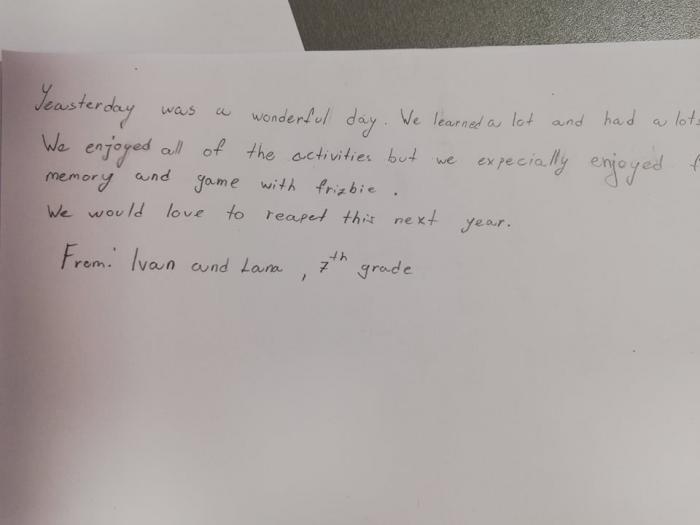 Yeasterday was a wonderful day. We learned a lot and had a lots
We enjoyed all of the activities but we expecially enjoyed
memory and game with frizbie.
We would love to reapet this next year.
From: Ivan and Lana, 7th grade